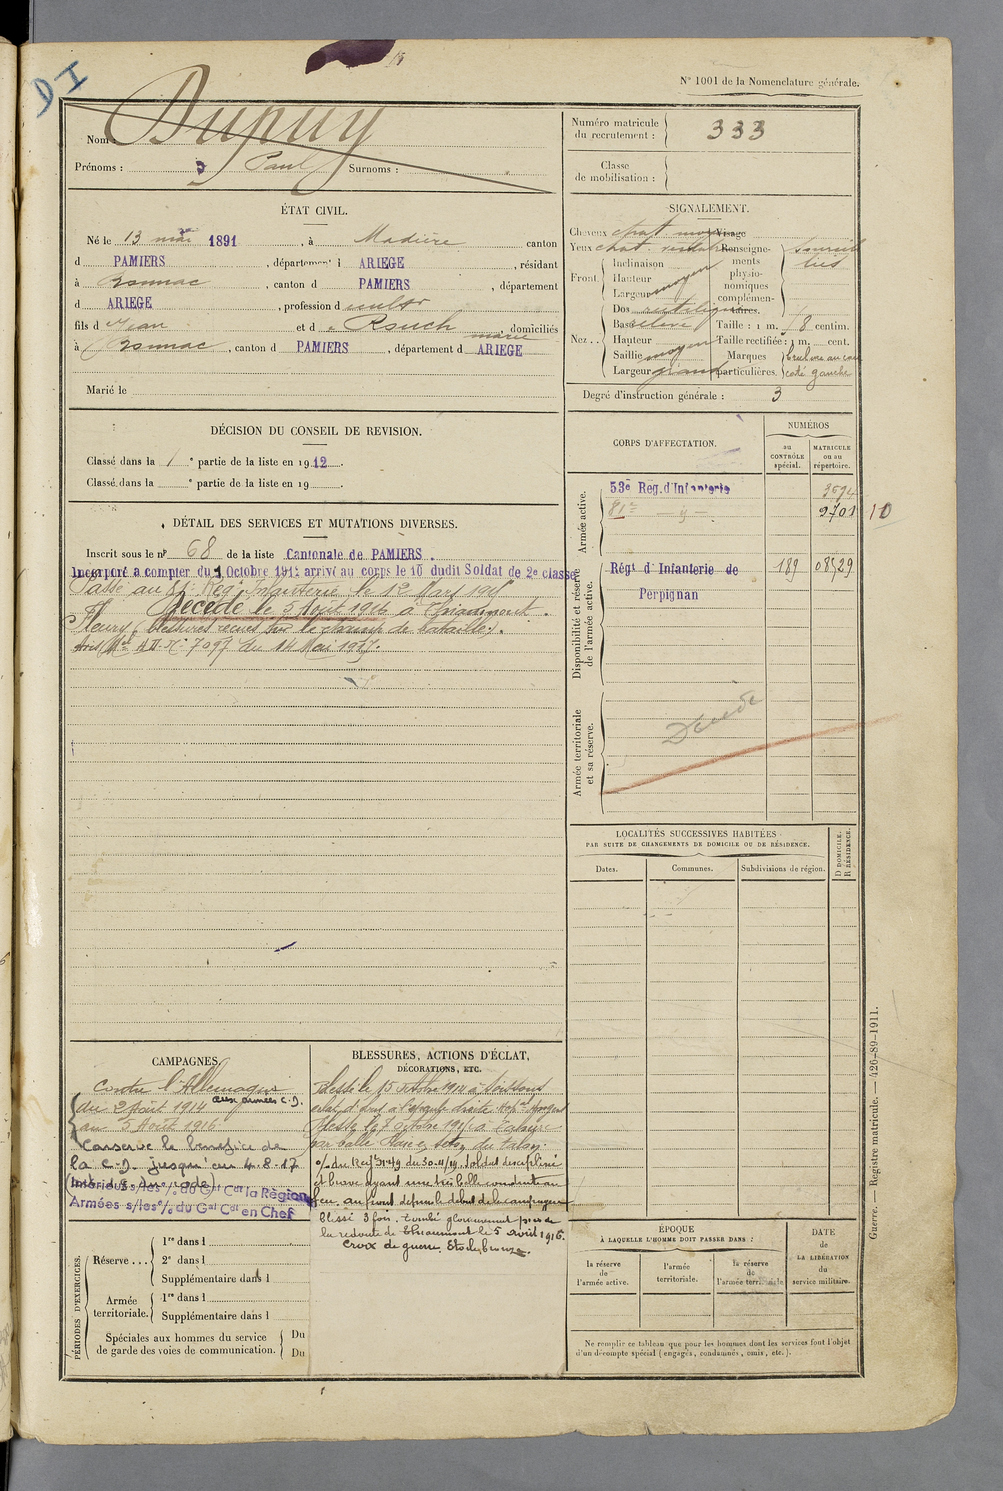 DI
N° 1001 de la Nomenclature générale.
Nom : Dupuy
Prénoms : Paul Surnoms :
Numéro matricule du recrutement : 333
Classe de mobilisation :
ÉTAT CIVIL.
Né le 13 mai 1891, à Madière canton
d PAMIERS, département d ARIEGE, résidant
à Bonnac, canton d PAMIERS, département
d ARIEGE, profession d cultr
fils d Jean et d Rouch marie, domiciliés
à Bonnac, canton d PAMIERS, département d ARIEGE
Marié le
DÉCISION DU CONSEIL DE REVISION.
Classé dans la 1e partie de la liste en 1912.
Classé dans la e partie de la liste en 19
DÉTAIL DES SERVICES ET MUTATIONS DIVERSES.
Inscrit sous le n° 68 de la liste Cantonale de PAMIERS.
Incorporé à compter du Octobre 191 arrivé au corps le 10 dudit Soldat de 2e classe
Passé au Reg. Infanterie le 1er Mars
Décédé le 5 Aout 1916 à Thiaumont.
Fleury (blessures reçues sur le champ de bataille).
avis Mel A.D. 7097 du 14 Mai 1917.
SIGNALEMENT.
Cheveux chat moyen Visage
Yeux chat.
Front. Inclinaison
Hauteur moyen
Largeur
Nez.. Dos rectiligne
Base élevé
Hauteur
Saillie moyen
Largeur grand
Renseignements physionomiques complémentaires.
Taille : 1 m. centim.
Taille rectifiée : 1 m. cent.
Marques particulières. coté gauche
Degré d'instruction générale : 3
CORPS D'AFFECTATION.
NUMÉROS
au CONTRÔLE spécial.
MATRICULE ou au répertoire.
Armée active.
53e Reg. d'Infanterie 3694
81e 2701 10
Disponibilité et réserve de l'armée active.
Régt d'Infanterie de 189 08529
Perpignan
Armée territoriale et sa réserve.
Décédé
LOCALITÉS SUCCESSIVES HABITÉES
PAR SUITE DE CHANGEMENTS DE DOMICILE OU DE RÉSIDENCE.
Dates. Communes. Subdivisions de région.
D DOMICILE. R RÉSIDENCE.
CAMPAGNES.
Contre l'Allemagne
du 2 Août 1914 aux armées C.D.
au 5 Aout 1916
Conserve le bénéfice de
la C.D. jusqu'au 4.8.17
Intérieur s/les % du Gal Cdt la Région
Armées s/les % du Gal Cdt en Chef
BLESSURES, ACTIONS D'ÉCLAT,
DÉCORATIONS, ETC.
Blessé le 15 octobre 1914 à Soissons
éclat d'obus à l'épaule droite
Blessé le 8 octobre 1915 à Tahure
par balle
du 30-4/19. Soldat discipliné
et brave ayant une très belle conduite au
feu, au front depuis le début de la campagne
blessé 3 fois. Tombé glorieusement près de
la redoute de Thiaumont le 5 1916.
Croix de guerre. Etoile bronze.
PÉRIODES D'EXERCICES.
Réserve ... 1re dans l
2e dans l
Supplémentaire dans l
Armée territoriale. 1re dans l
Supplémentaire dans l
Spéciales aux hommes du service de garde des voies de communication. Du
Du
ÉPOQUE
À LAQUELLE L'HOMME DOIT PASSER DANS :
la réserve de l'armée active.
l'armée territoriale.
la réserve de l'armée territoriale
DATE de LA LIBÉRATION du service militaire.
Ne remplir ce tableau que pour les hommes dont les services font l'objet
d'un décompte spécial (engagés, condamnés, omis, etc.).
Guerre. — Registre matricule. — 426-89-1911.